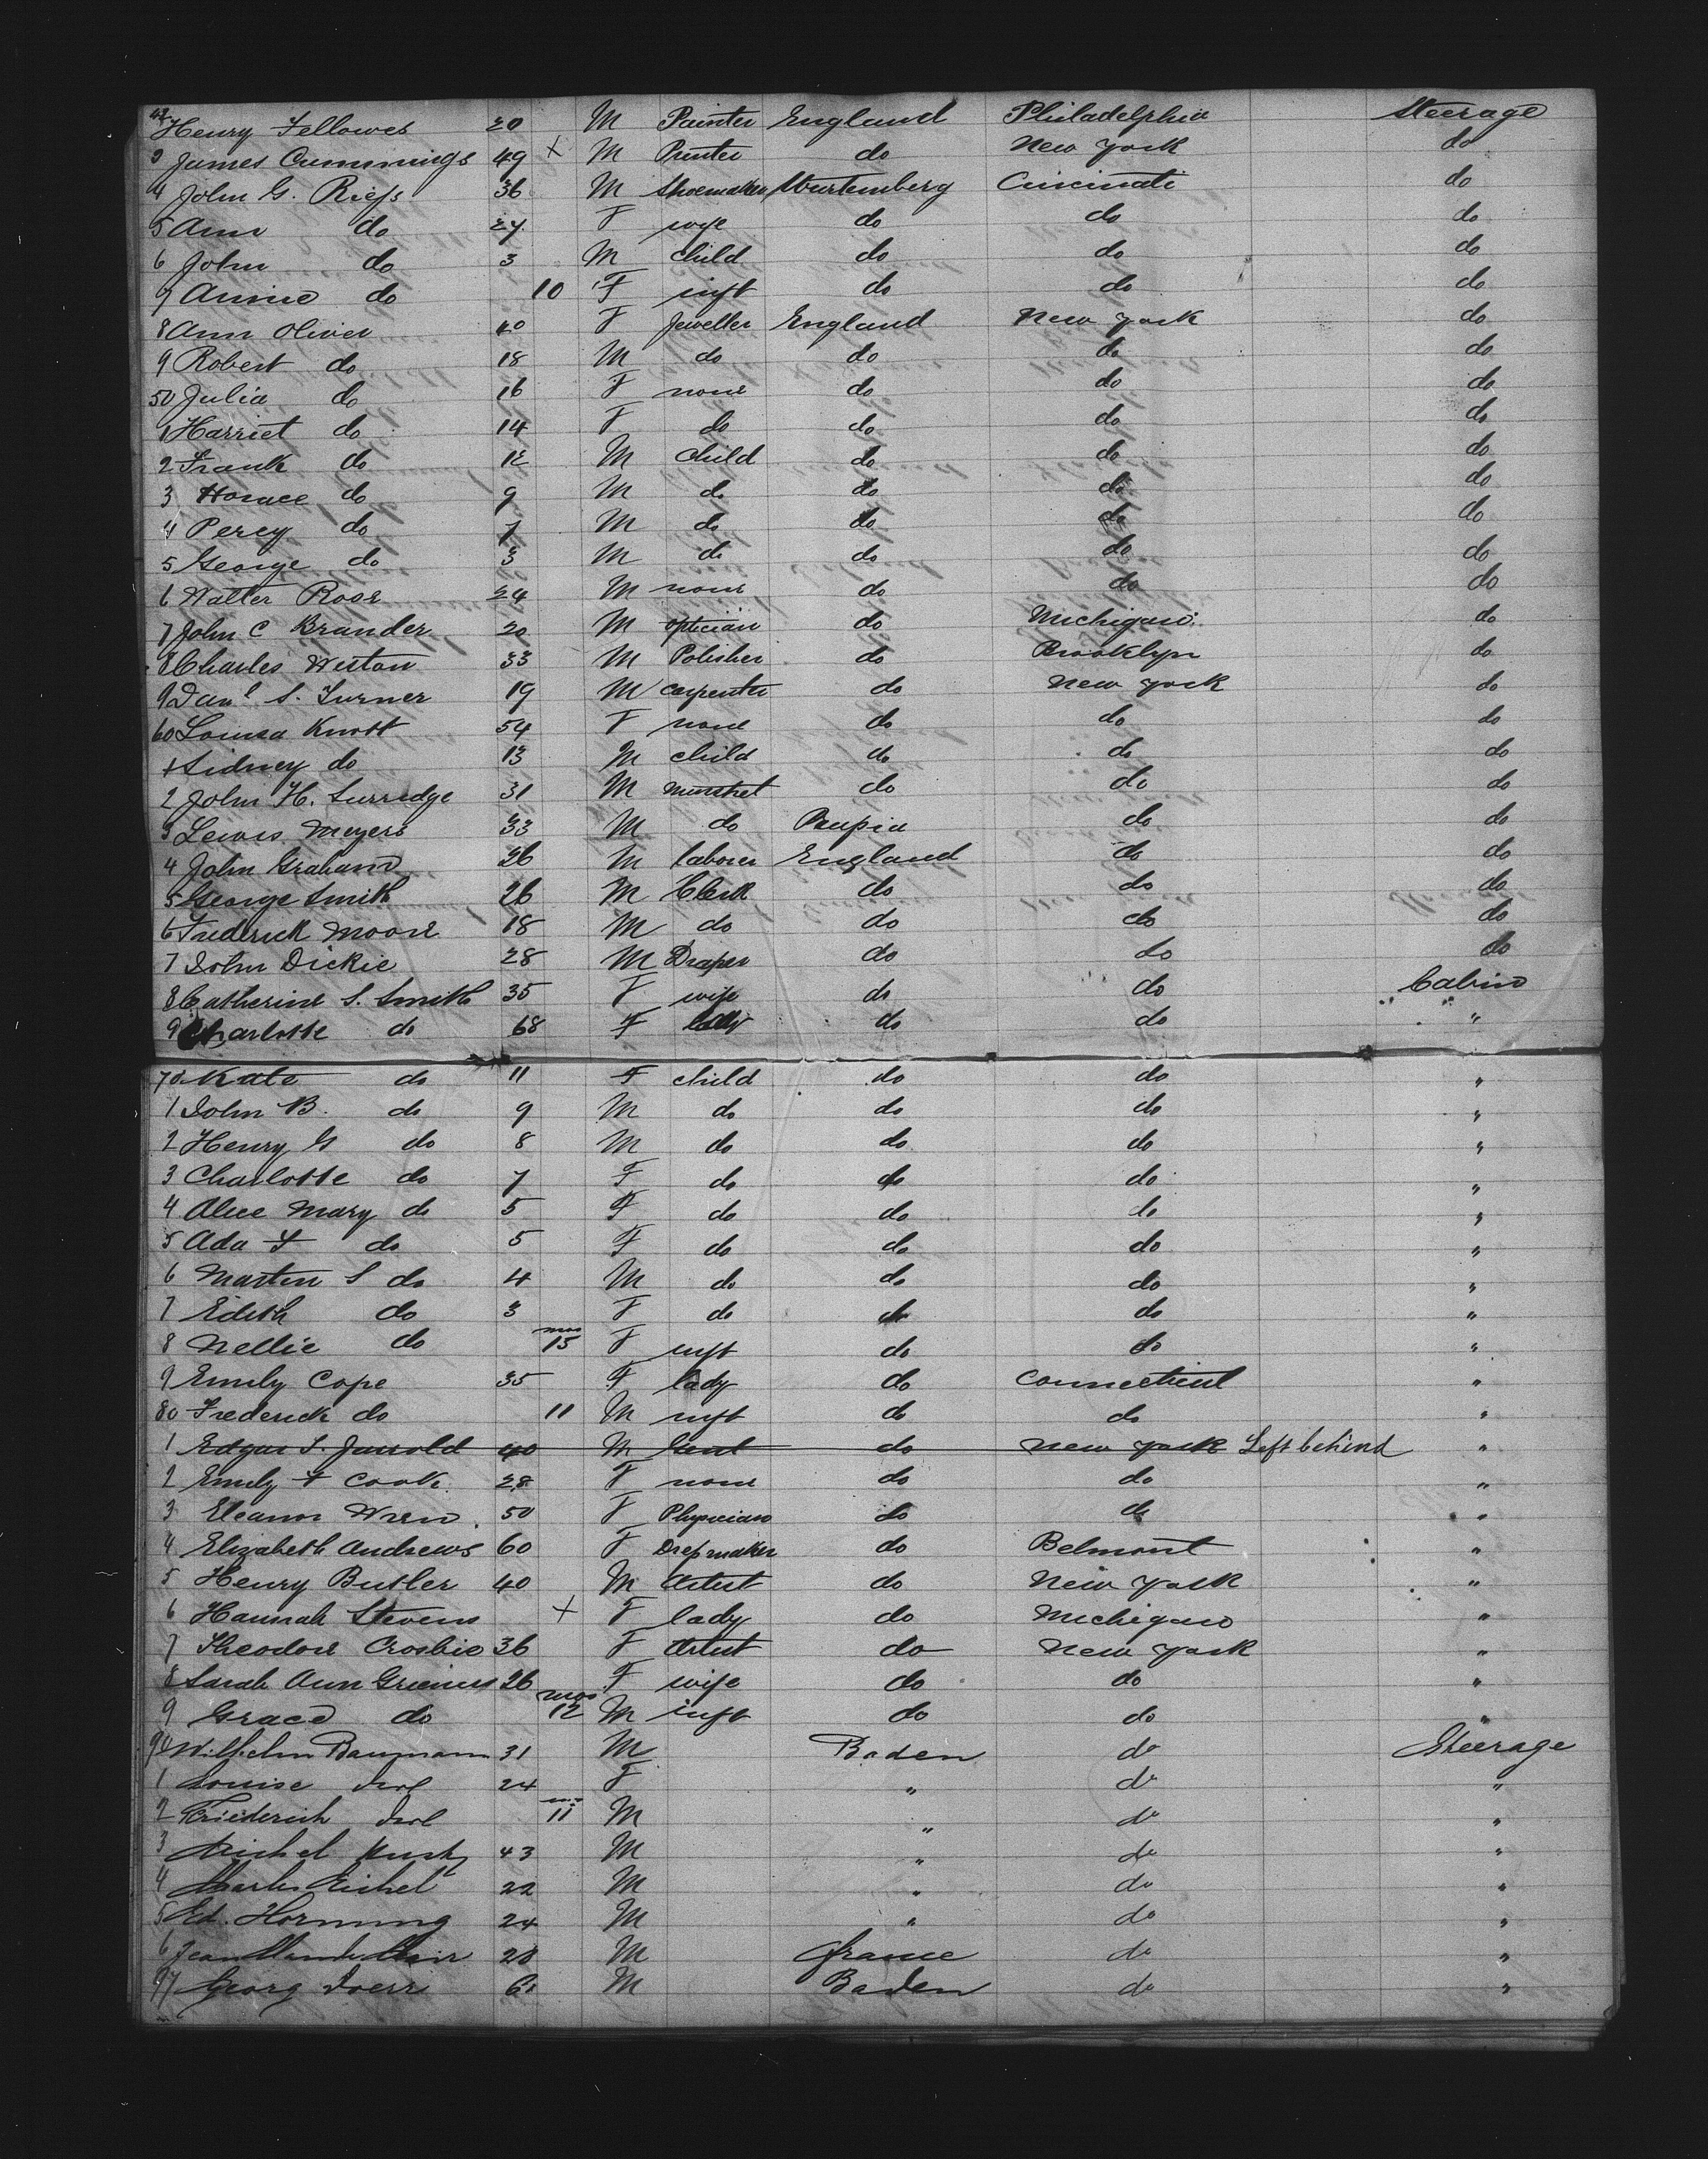 42 Henry Fellowes 20 M Painter England Philadelphia Steerage
3 James Cummings 49 + M Printer do New York do
4 John G. Riess 36 M Shoemaker Wurtemberg Cincinati do
5 Ann do 27 F wife do do do
6 John do 3 M child do do do
7 Annie do 10 F inft do do do
8 Ann Oliver 40 F Jeweller England New York do
9 Robert do 18 M do do do do
50 Julia do 16 F none do do do
1 Harriet do 14 F do do do do
2 Frank do 12 M child do do do
3 Horace do 9 M do do do do
4 Percy do 7 M do do do do
5 George do 3 M do do do do
6 Walter Rose 24 M none do do do
7 John C Brander 20 M optician do Michigan do
8 Charles Weston 33 M Polisher do Brooklyn do
9 Danl S. Turner 19 M carpenter do New York do
60 Louisa Knott 54 F none do do do
1 Sidney do 13 M child do do do
2 John H. Surredge 31 M minstrel do do do
3 Lewis Meyers 33 M do Russia do do
4 John Graham 26 M laborer England do do
5 George Smith 26 M Clerk do do do
6 Frederick Moore 18 M do do do do
7 John Dickie 28 M Draper do do do
8 Catherine S. Smith 35 F wife do do Cabin
9 Charlotte do 68 F lady do do "
70 Kate do 11 F child do do "
1 John B. do 9 M do do do "
2 Henry G do 8 M do do do "
3 Charlotte do 7 F do do do "
4 Alice Mary do 5 F do do do "
5 Ada F do 5 F do do do "
6 Martin S do 4 M do do do "
7 Edith do 3 F do do do "
8 Nellie do mos 15 F inft do do "
9 Emily Cope 35 F lady do Connecticut "
80 Frederick do 11 M inft do do "
1 Edgar S. Jarrold 40 M Gent do New York Left behind "
2 Emily F Cook 28 F none do do "
3 Eleanor Wren 50 F Physician do do "
4 Elizabeth Andrews 60 F Dressmaker do Belmont "
5 Henry Butler 40 M Artist do New York "
6 Hannah Stevens + F lady do Michigan "
7 Theodore Crosbie 36 F Artist do New York "
8 Sarah Ann 26 F wife do do "
9 Grace do mos 12 M inft do do "
90 Wilhelm Baumann 31 M Baden do Steerage
1 Louise 24 F " do "
2 Friederich 11 M " do "
3 Michel 43 M " do "
4 Eichel 22 M " do "
5 Ed. Hornung 24 M " do "
6 Jean 28 M France do "
97 Georg Doerr M Baden do "